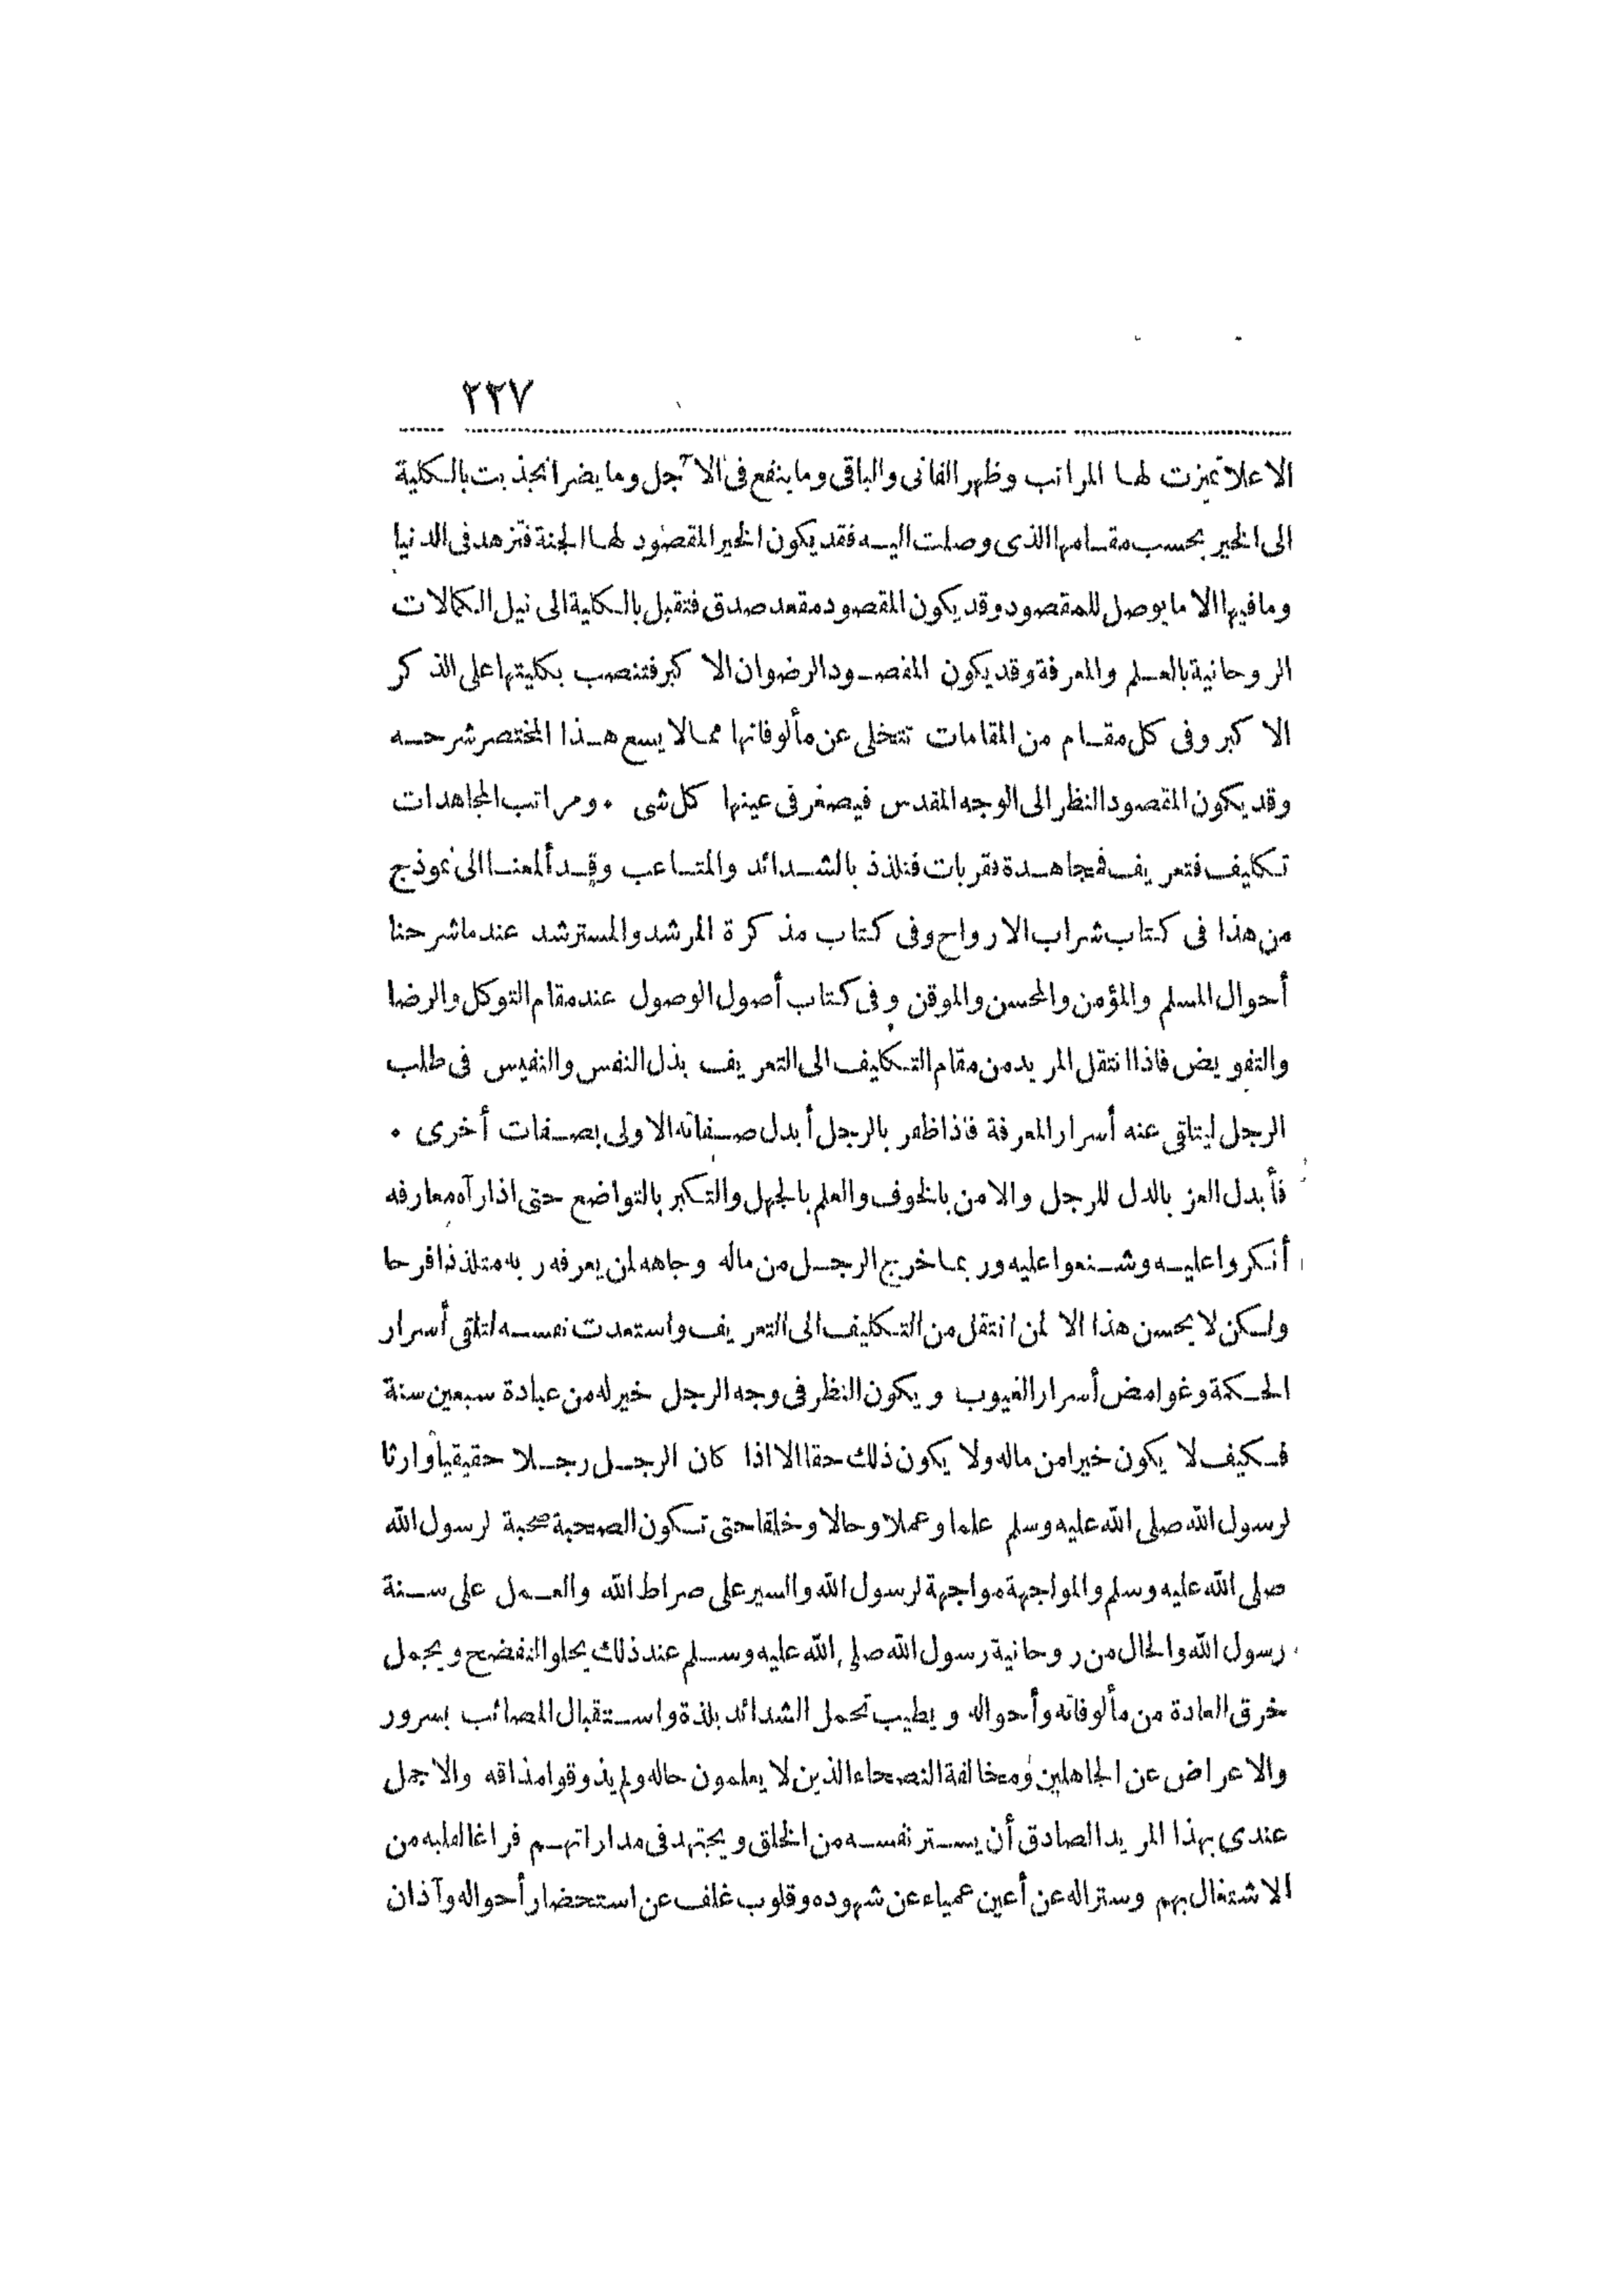 ٢٢٧
الاعلا تميزت لها المراتب وظهر الفانى والباقى وما ينفع فى الآجل وما يضر انجذبت بالكلية
الى الخير بحسب مقامها الذى وصلت اليه فقد يكون الخير المقصود لها الجنة فتزهد فى الدنيا
وما فيها الا ما يوصل للمقصود وقد يكون المقصود مقعد صدق فتقبل بالكلية الى نيل الكمالات
الروحانية بالعلم والمعرفة وقد يكون المقصود الرضوان الاكبر فتنصب بكليتها على الذكر
الاكبر وفى كل مقام من المقامات تتخلى عن مألوفاتها مما لا يسع هذا المختصر شرحه
وقد يكون المقصود النظر الى الوجه المقدس فيصغر فى عينها كل شى . ومراتب المجاهدات
تكليف فتعريف فمجاهدة فقربات فتلذذ بالشدائد والمتاعب وقد ألمعنا الى نموذج
من هذا فى كتاب شراب الارواح وفى كتاب مذكرة المرشد والمسترشد عند ما شرحنا
أحوال المسلم والمؤمن والمحسن والموقن وفى كتاب أصول الوصول عند مقام التوكل والرضا
والتفويض فاذا انتقل المريد من مقام التكليف الى التعريف بذل النفس والنفيس فى طلب
الرجل ليتلقى عنه أسرار المعرفة فاذا ظفر بالرجل أبدل صفاته الاولى بصفات أخرى .
فأبدل العز بالدل للرجل والامن بالخوف والعلم بالجهل والتكبر بالتواضع حتى اذا رآه معارفه
أنكروا عليه وشنعوا عليه وربما خرج الرجل من ماله وجاهه لمن يعرفه ربه متلذذا فرحا
ولكن لا يحسن هذا الا لمن انتقل من التكليف الى التعريف واستعدت نفسه لتلقى أسرار
الحكمة وغوامض أسرار الغيوب ويكون النظر فى وجه الرجل خير له من عبادة سبعين سنة
فكيف لا يكون خيرا من ماله ولا يكون ذلك حقا الا اذا كان الرجل رجلا حقيقيا وارثا
لرسول الله صلى الله عليه وسلم علما وعملا وحالا وخلقا حتى تكون الصحبة صحبة لرسول الله
صلى الله عليه وسلم والمواجهة مواجهة لرسول الله والسير على صراط الله والعمل على سنة
رسول الله والحال من روحانية رسول الله صلى الله عليه وسلم عند ذلك يحلو التفضح ويجمل
خرق العادة من مألوفاته وأحواله ويطيب تحمل الشدائد بلذة واستقبال المصائب بسرور
والاعراض عن الجاهلين ومخالفة النصحاء الذين لا يعلمون حاله ولم يذوقوا مذاقه والاجمل
عندى بهذا المريد الصادق أن يستر نفسه من الخلق ويجتهد فى مداراتهم فراغا لقلبه من
الاشتغال بهم وسترا له عن أعين عمياء عن شهوده وقلوب غلف عن استحضار أحواله وآذان